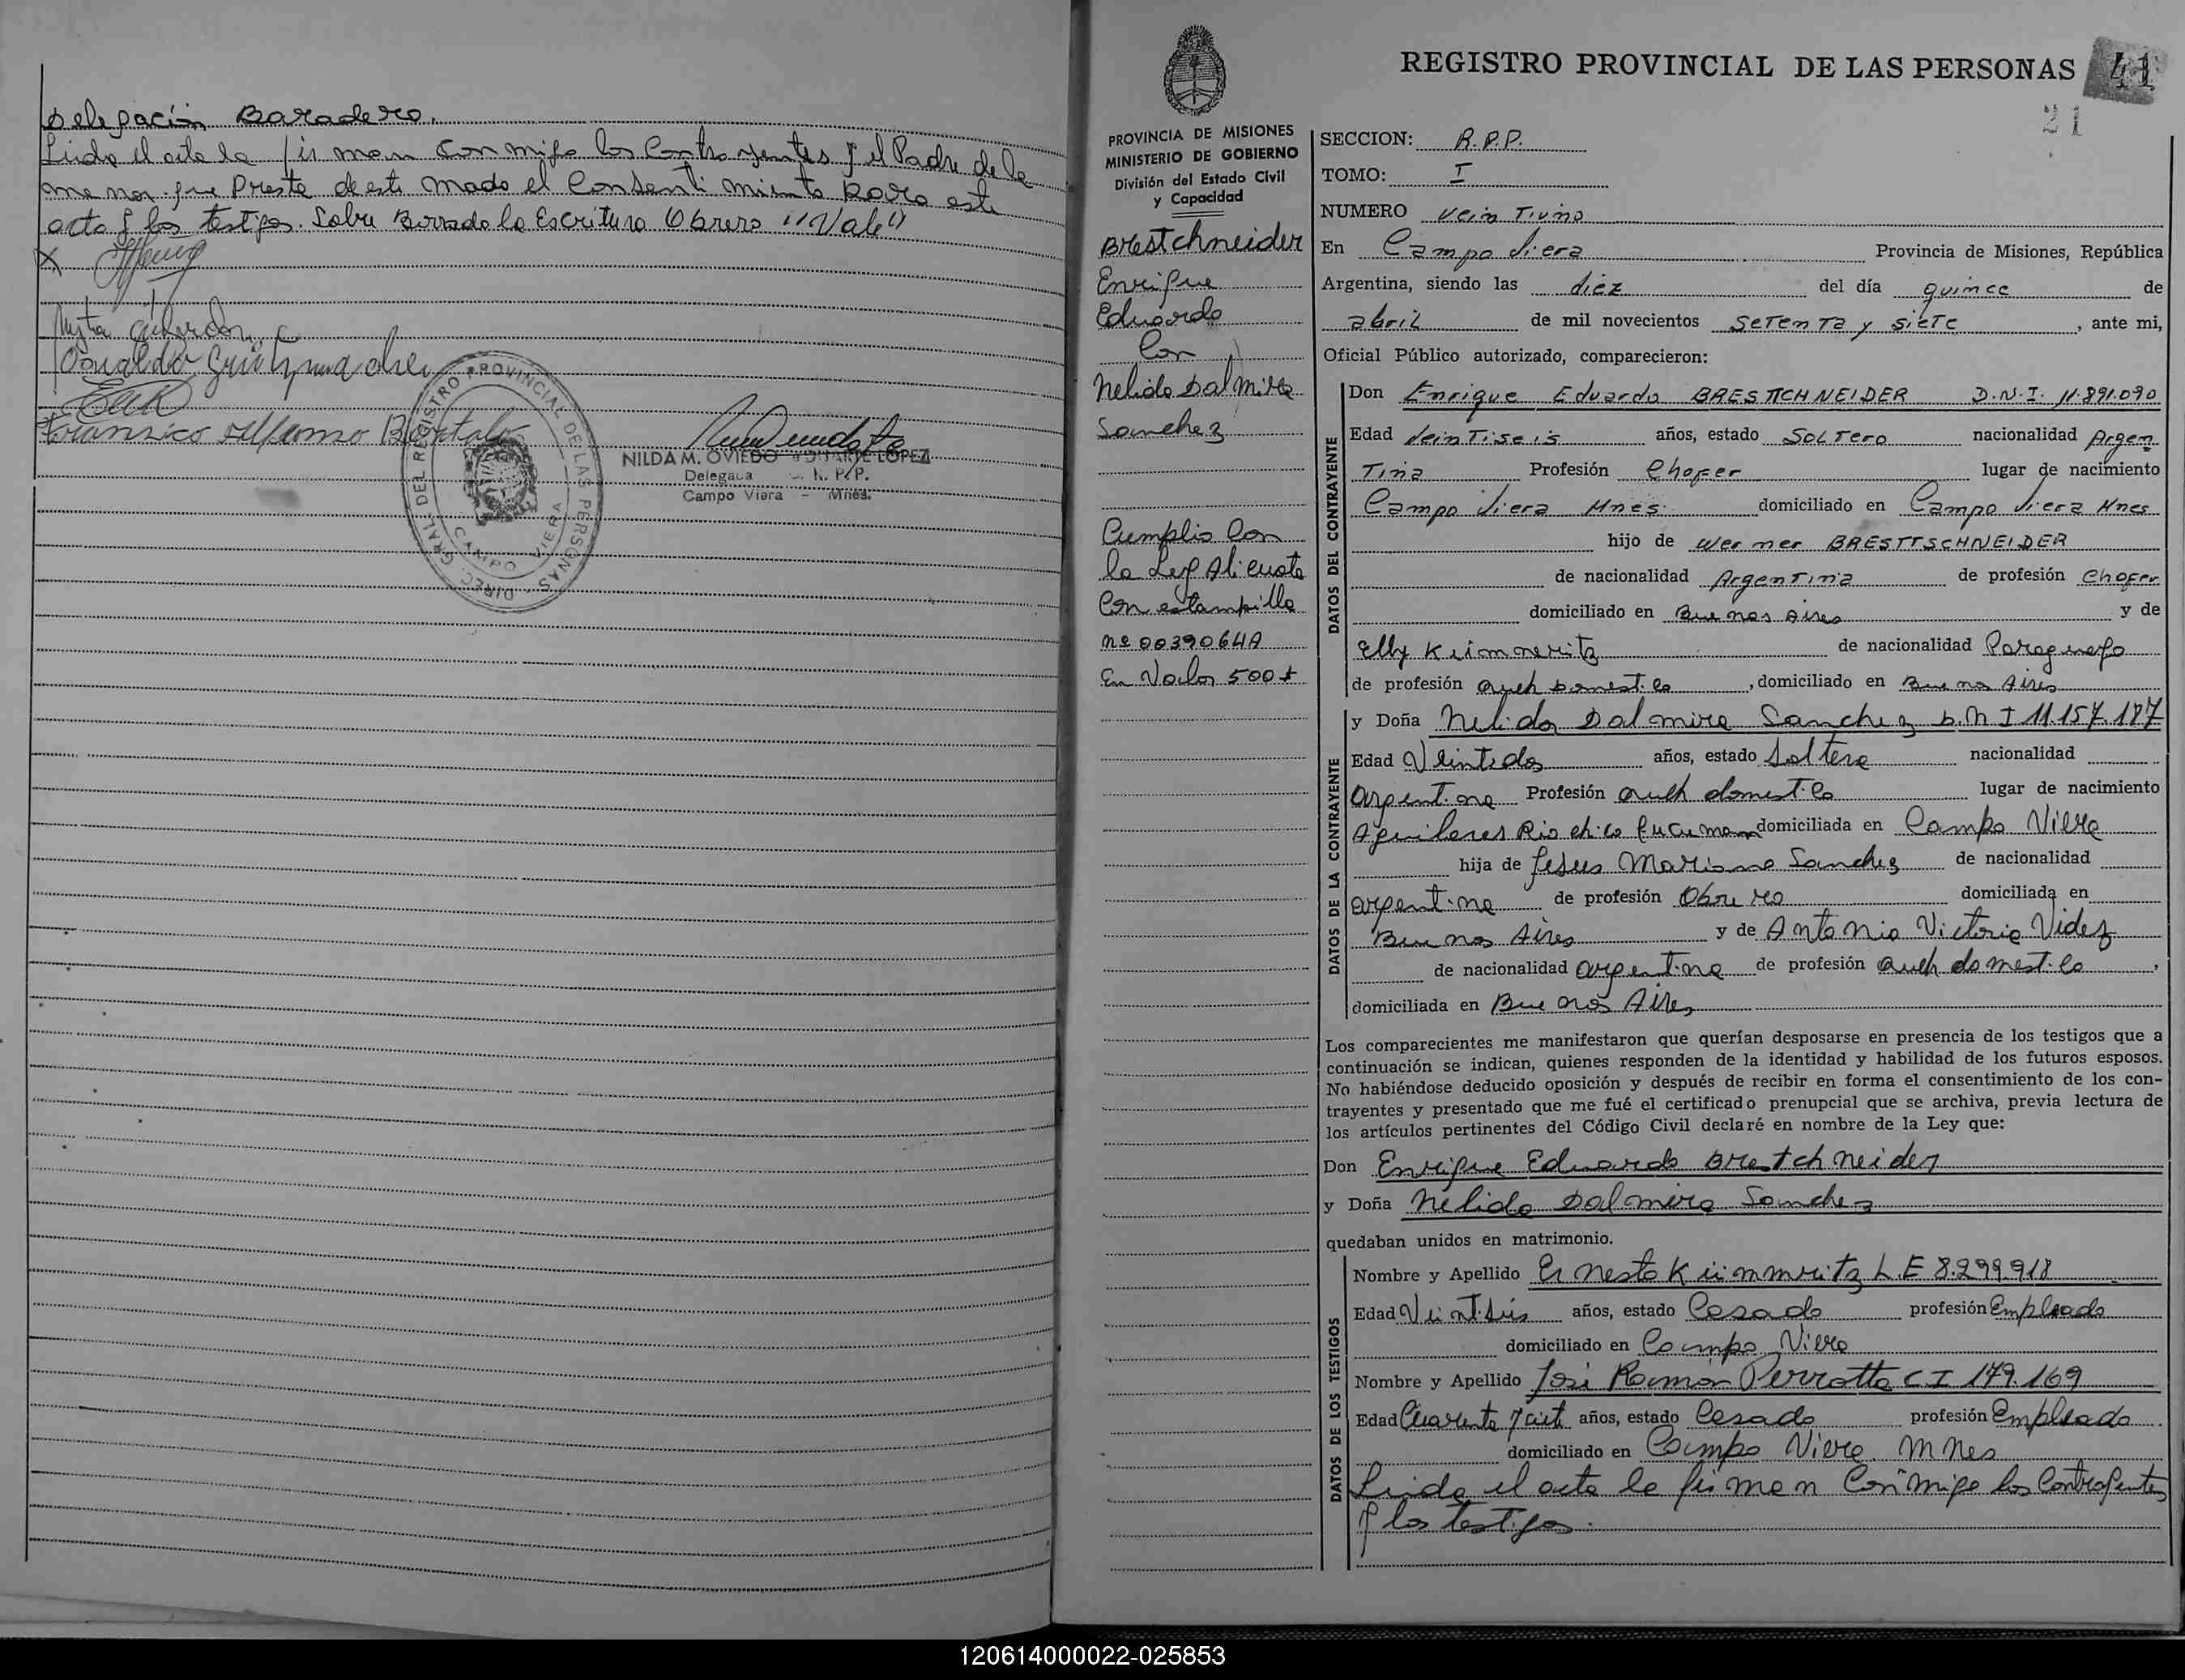 Delegación Baradero.
Leida el acta la firman conmigo los Contrayentes y el Padre de la
menor que Presta de este modo el Consentimiento para este
acto y los testigos. Sobre Borrado la Escritura Obrero "Vale"
X
Osvaldo
Fransico Alfonso
DIREC. GRAL DEL REGISTRO PROVINCIAL DE LAS PERSONAS
CAMPO VIERA
NILDA M. OVIEDO DUARTE LOPEZ
Delegada R. P. P.
Campo Viera - Mnes.
REGISTRO PROVINCIAL DE LAS PERSONAS 41
21
PROVINCIA DE MISIONES
MINISTERIO DE GOBIERNO
División del Estado Civil
y Capacidad
Brestchneider
Enrique
Eduardo
Con
Nelida Dalmira
Sanchez
Cumplio Con
la Ley Alicuota
Con estampilla
Nº 0039064A
En Valor 500 $
SECCION: R.P.P.
TOMO: I
NUMERO Vein Tiuno
En Campo Viera Provincia de Misiones, República
Argentina, siendo las diez del día quince de
abril de mil novecientos setenta y siete, ante mi,
Oficial Público autorizado, comparecieron:
DATOS DEL CONTRAYENTE
Don Enrique Eduardo BRESTCHNEIDER D.N.I. 11.891.090
Edad VeinTiseis años, estado Soltero nacionalidad Argen
Tina Profesión Chofer lugar de nacimiento
Campo Viera Mnes. domiciliado en Campo Viera Mnes
hijo de Werner BRESTTSCHNEIDER
de nacionalidad Argentina de profesión Chofer
domiciliado en Buenos Aires y de
Elly Kümmeritz de nacionalidad Paraguaya
de profesión Queh Domest.co, domiciliado en Buenos Aires
DATOS DE LA CONTRAYENTE
y Doña Nelida Dalmira Sanchez D.N I 11.157.187
Edad Veintidos años, estado Soltera nacionalidad
argentina Profesión Queh domest.co lugar de nacimiento
Aguilares Rio chico Tucuman domiciliada en Campo Viera
hija de Jesus Mariano Sanchez de nacionalidad
argentina de profesión Obrero domiciliada en
Buenos Aires y de Antonia Victoria Videz
de nacionalidad argentina de profesión Queh domest.co,
domiciliada en Buenos Aires
Los comparecientes me manifestaron que querían desposarse en presencia de los testigos que a
continuación se indican, quienes responden de la identidad y habilidad de los futuros esposos.
No habiéndose deducido oposición y después de recibir en forma el consentimiento de los con-
trayentes y presentado que me fué el certificado prenupcial que se archiva, previa lectura de
los artículos pertinentes del Código Civil declaré en nombre de la Ley que:
Don Enrique Eduardo Brestchneider
y Doña Nelida Dalmira Sanchez
quedaban unidos en matrimonio.
DATOS DE LOS TESTIGOS
Nombre y Apellido Ernesto Kümmritz L.E 8.299.918
Edad Veintseis años, estado Casado profesión Empleado
domiciliado en Campo Viera
Nombre y Apellido José Ramón Perrotta C I 179.169
Edad Cuarenta y años, estado Casado profesión Empleado
domiciliado en Campo Viera. Mnes
Leida el acta la firman Conmigo los Contrayentes
y los testigos.
120614000022-025853